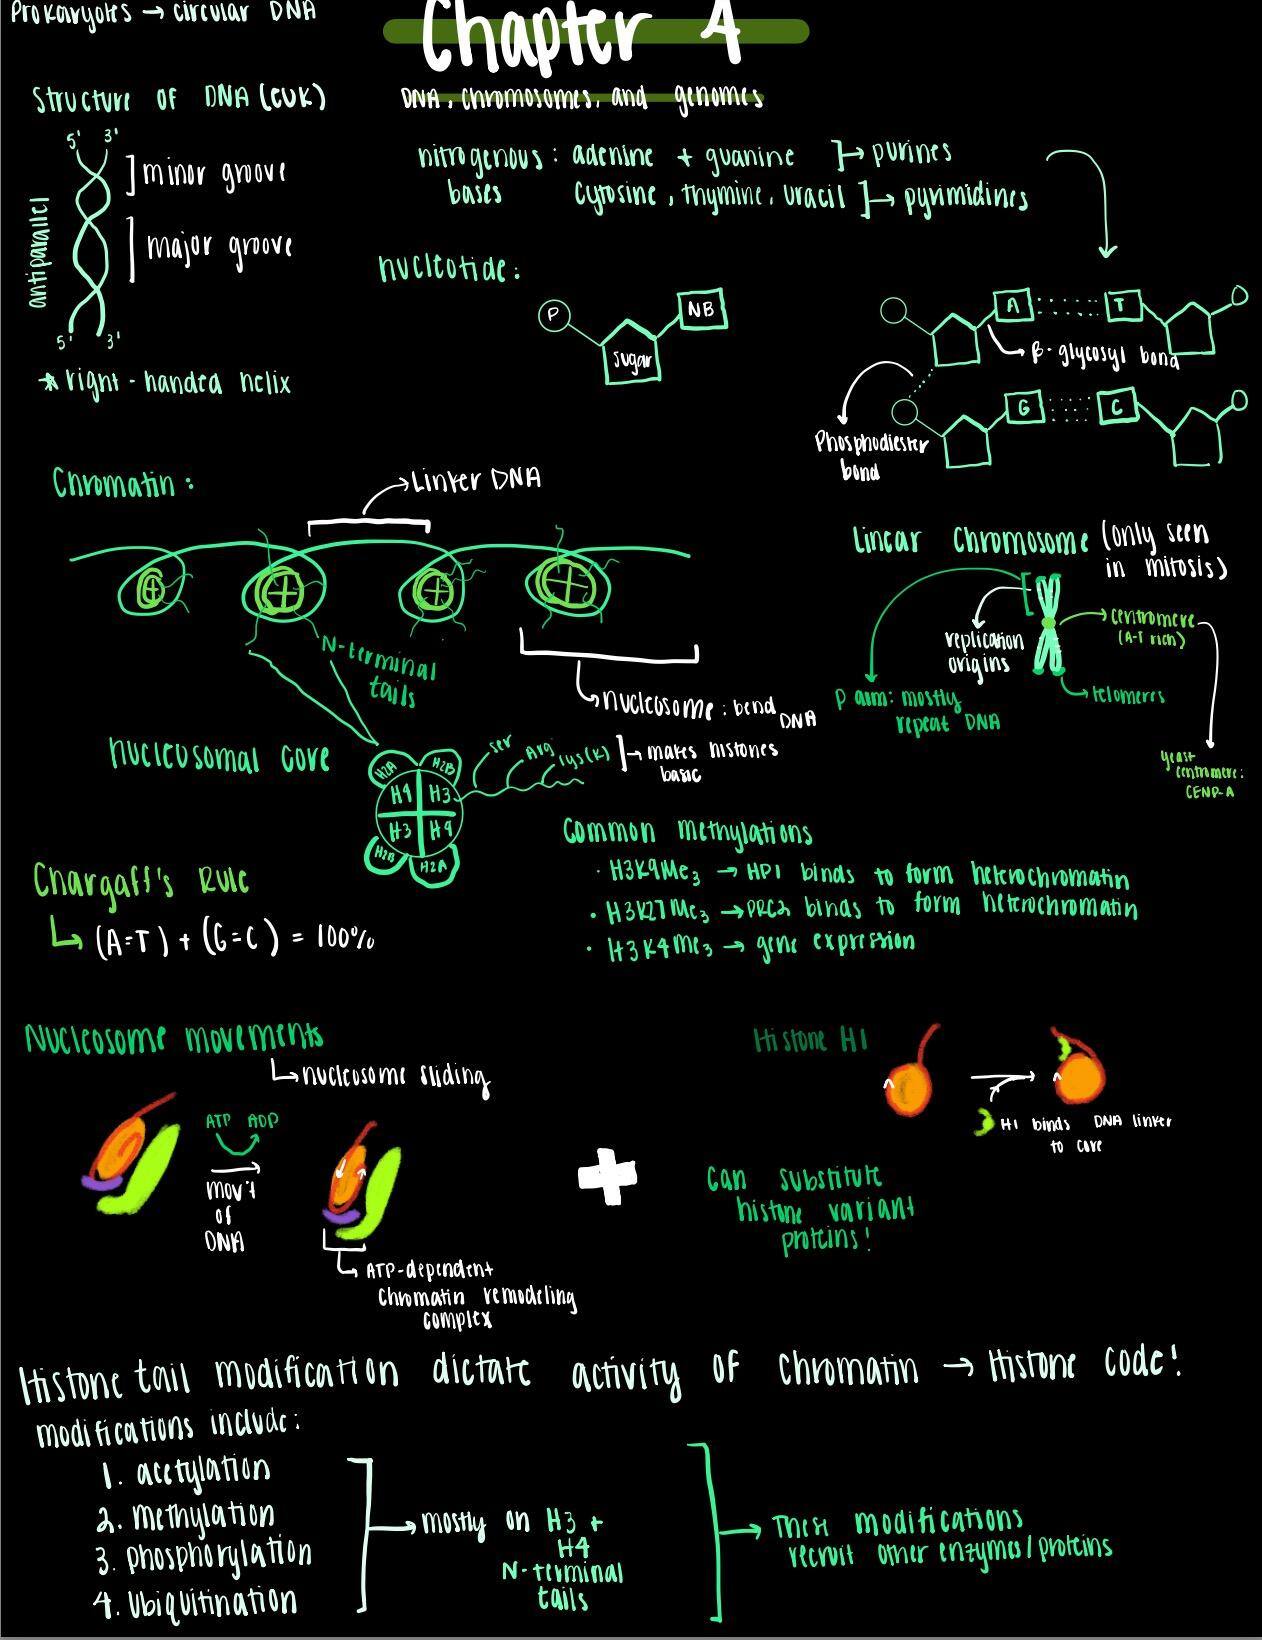 Prokaryotes → circular DNA
Chapter 4
DNA, chromosomes, and genomes
Structure of DNA (euk)
5' 3'
minor groove
major groove
antiparallel
5' 3'
* right-handed helix
nitrogenous bases : adenine + guanine → purines
cytosine, thymine, uracil → pyrimidines
nucleotide:
P
sugar
NB
A T
β-glycosyl bond
G C
Phosphodiester
bond
Chromatin:
Linker DNA
N-terminal
tails
nucleosome: bend
DNA
Linear Chromosome (only seen
in mitosis)
replication
origins
centromere
(A-T rich)
telomeres
p arm: mostly
repeat DNA
yeast
centromere:
CENP-A
nucleosomal core
H2A H2B
H4 H3
H3 H4
H2B H2A
ser Arg lys(K) → makes histones
basic
Chargaff's Rule
↳ (A=T) + (G=C) = 100%
Common Methylations
· H3K9Me3 → HP1 binds to form heterochromatin
· H3K27Me3 → PRC2 binds to form heterochromatin
· H3K4Me3 → gene expression
Nucleosome movements
↳ nucleosome sliding
ATP ADP
mov't
of
DNA
ATP-dependent
chromatin remodeling
complex
Histone H1
H1 binds DNA linker
to core
can substitute
histone variant
proteins!
Histone tail modification dictate activity of chromatin → Histone code!
modifications include:
1. acetylation
2. methylation
3. phosphorylation
4. Ubiquitination
→ mostly on H3 +
H4
N-terminal
tails
→ These modifications
recruit other enzymes/proteins